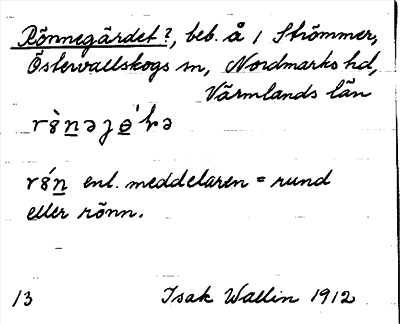 Rönnegärdet?, beb. å 1 Strömmer,
Östervallskogs sn, Nordmarks hd,
Värmlands län
enl. meddelaren = rund
eller rönn.
13 Isak Wallin 1912